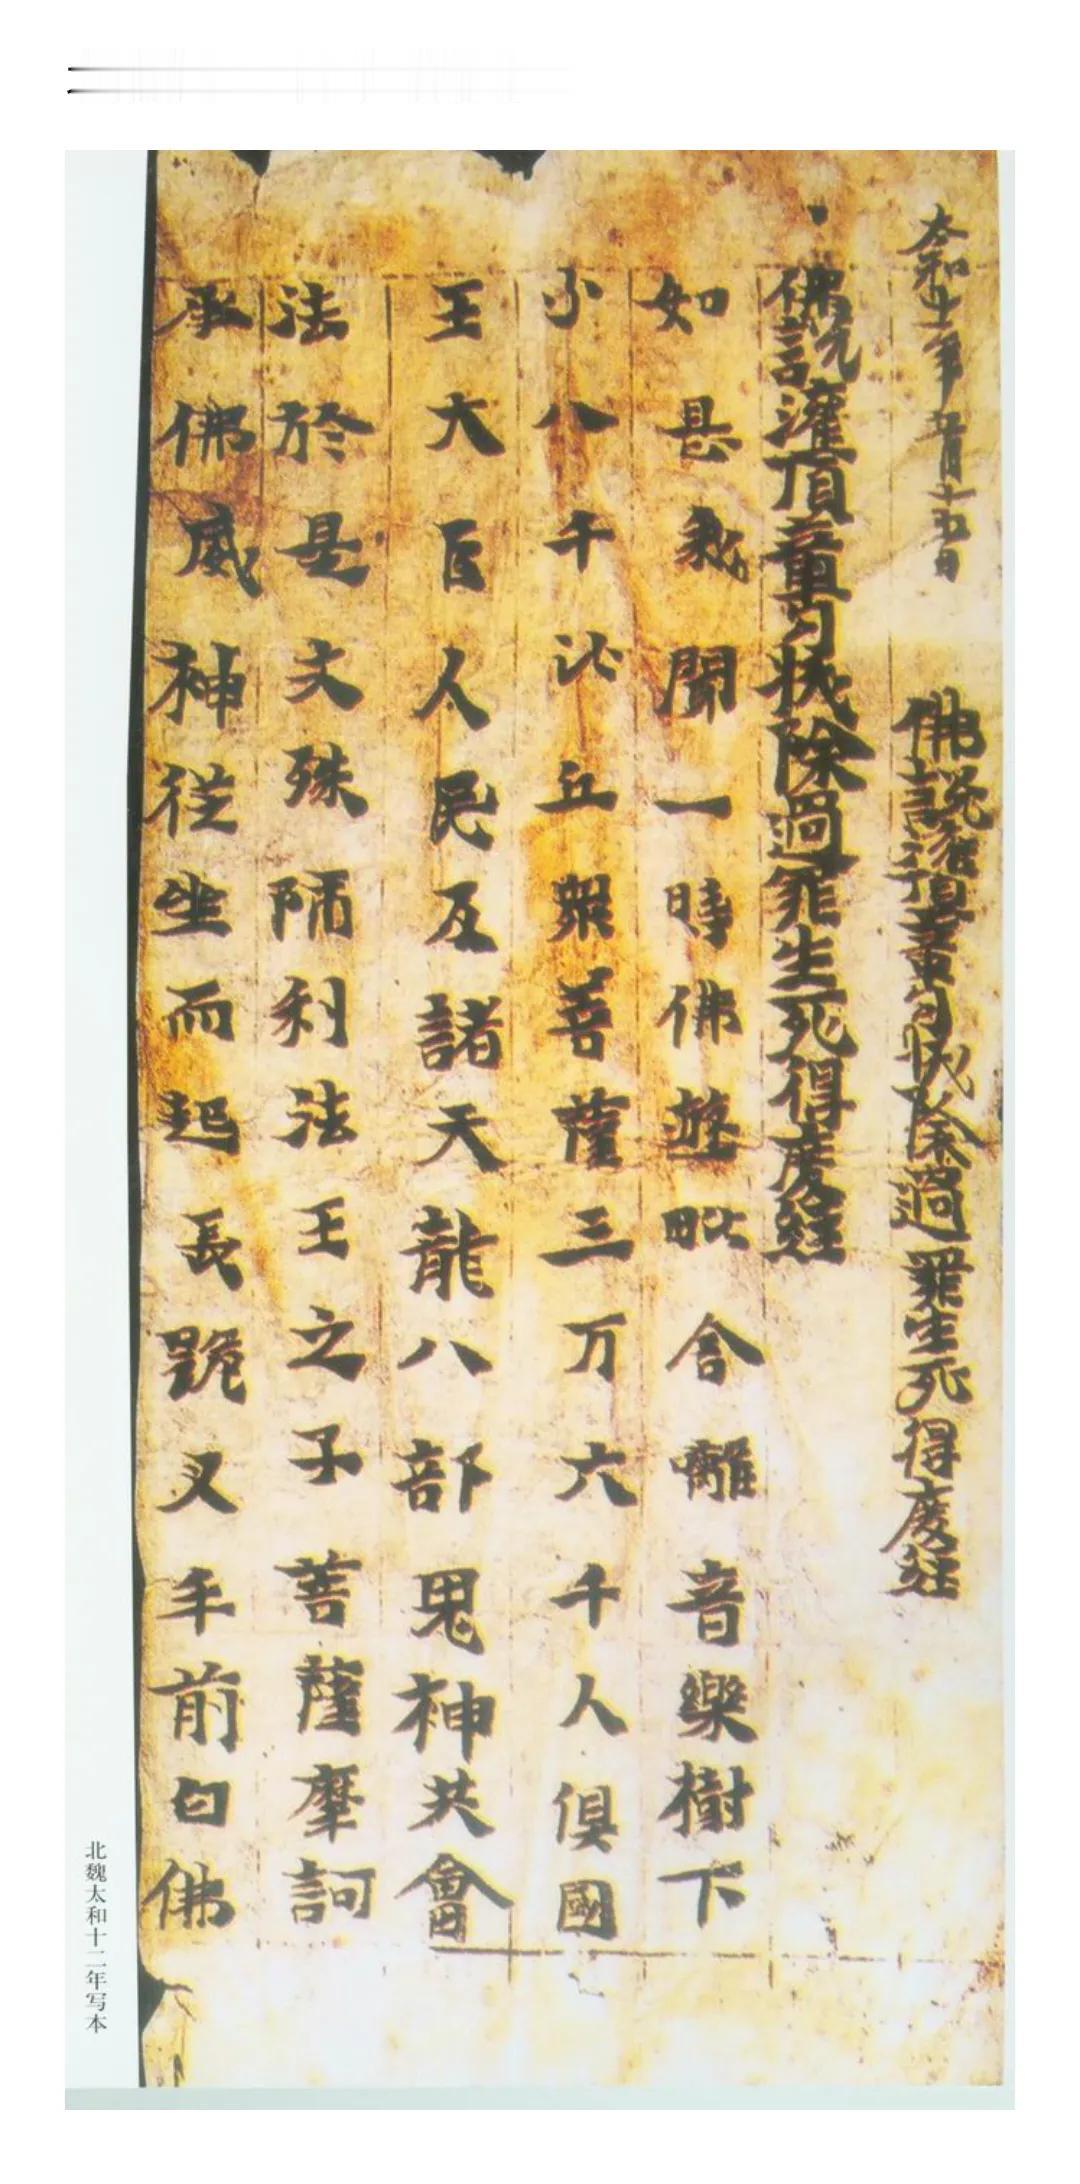 太和十二年五月十五日 佛說灌頂章句拔除過罪生死得度經
佛說灌頂章句拔除過罪生死得度經
如是我聞一時佛遊毗舍離音樂樹下
八千比丘眾菩薩三万六千人俱國
王大臣人民及諸天龍八部鬼神共會
法於是文殊師利法王之子菩薩摩訶
承佛威神從坐而起長跪叉手前白佛
北魏太和十二年写本